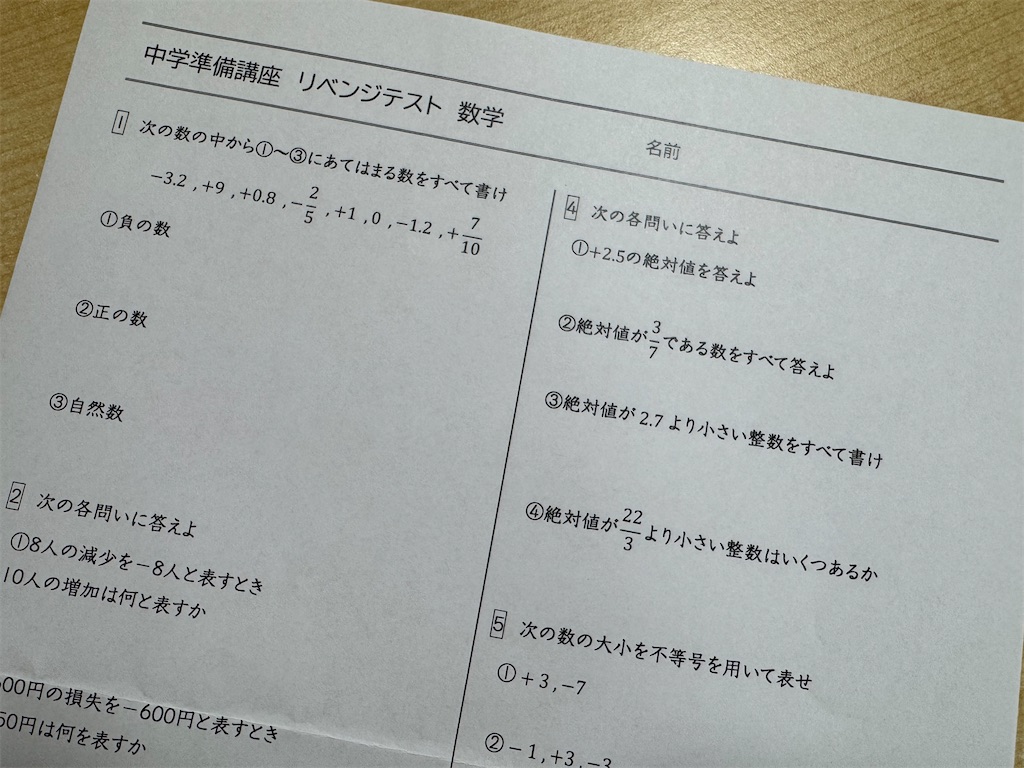 中学準備講座 リベンジテスト 数学
名前
1 次の数の中から①～③にあてはまる数をすべて書け
−3.2 , +9 , +0.8 , −2/5 , +1 , 0 , −1.2 , +7/10
①負の数
②正の数
③自然数
2 次の各問いに答えよ
①8人の減少を−8人と表すとき
10人の増加は何と表すか
00円の損失を−600円と表すとき
50円は何を表すか
4 次の各問いに答えよ
①+2.5の絶対値を答えよ
②絶対値が3/7である数をすべて答えよ
③絶対値が 2.7 より小さい整数をすべて書け
④絶対値が22/3より小さい整数はいくつあるか
5 次の数の大小を不等号を用いて表せ
①+3 , −7
②−1 , +3 , −3